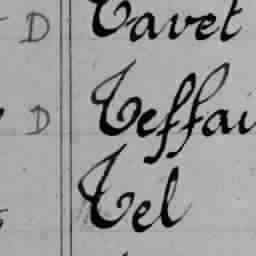 D Tavet
D Teffai
Tel